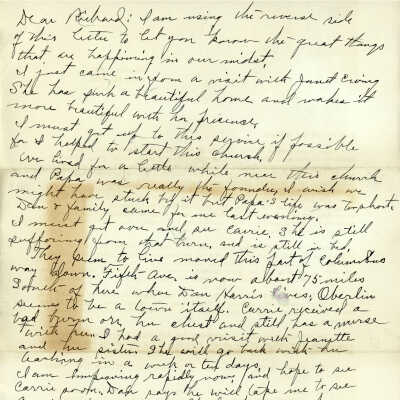 Dear Richard: I am using the reverse side
of this letter to let you know the great things
that are happening in our midst.
I just came in from a visit with Janet Ewing
She has such a beautiful home and makes it
more beautiful with her presence.
I must get up to this service if possible
for I helped to start this Church.
We lived for a little while near this church
and Papa was really the founder, I wish we
might have stuck by it but Papa's life was too short.
Dan & family came for me last evening.
I must get over and see Carrie, She is still
suffering from that burn, and is still in bed.
They seem to have moved this part of Columbus
way down. Fifth Ave. is now about 75 miles
South of here where Dan Harris lives, Oberlin
seems to be a town itself. Carrie received a
bad burn on her chest and still has a nurse
with her. I had a good visit with Jeanette
and her sister. She will go back with her
in a week or ten days.
I am improving rapidly now, and hope to see
Carrie soon, Dan says he will take me to see